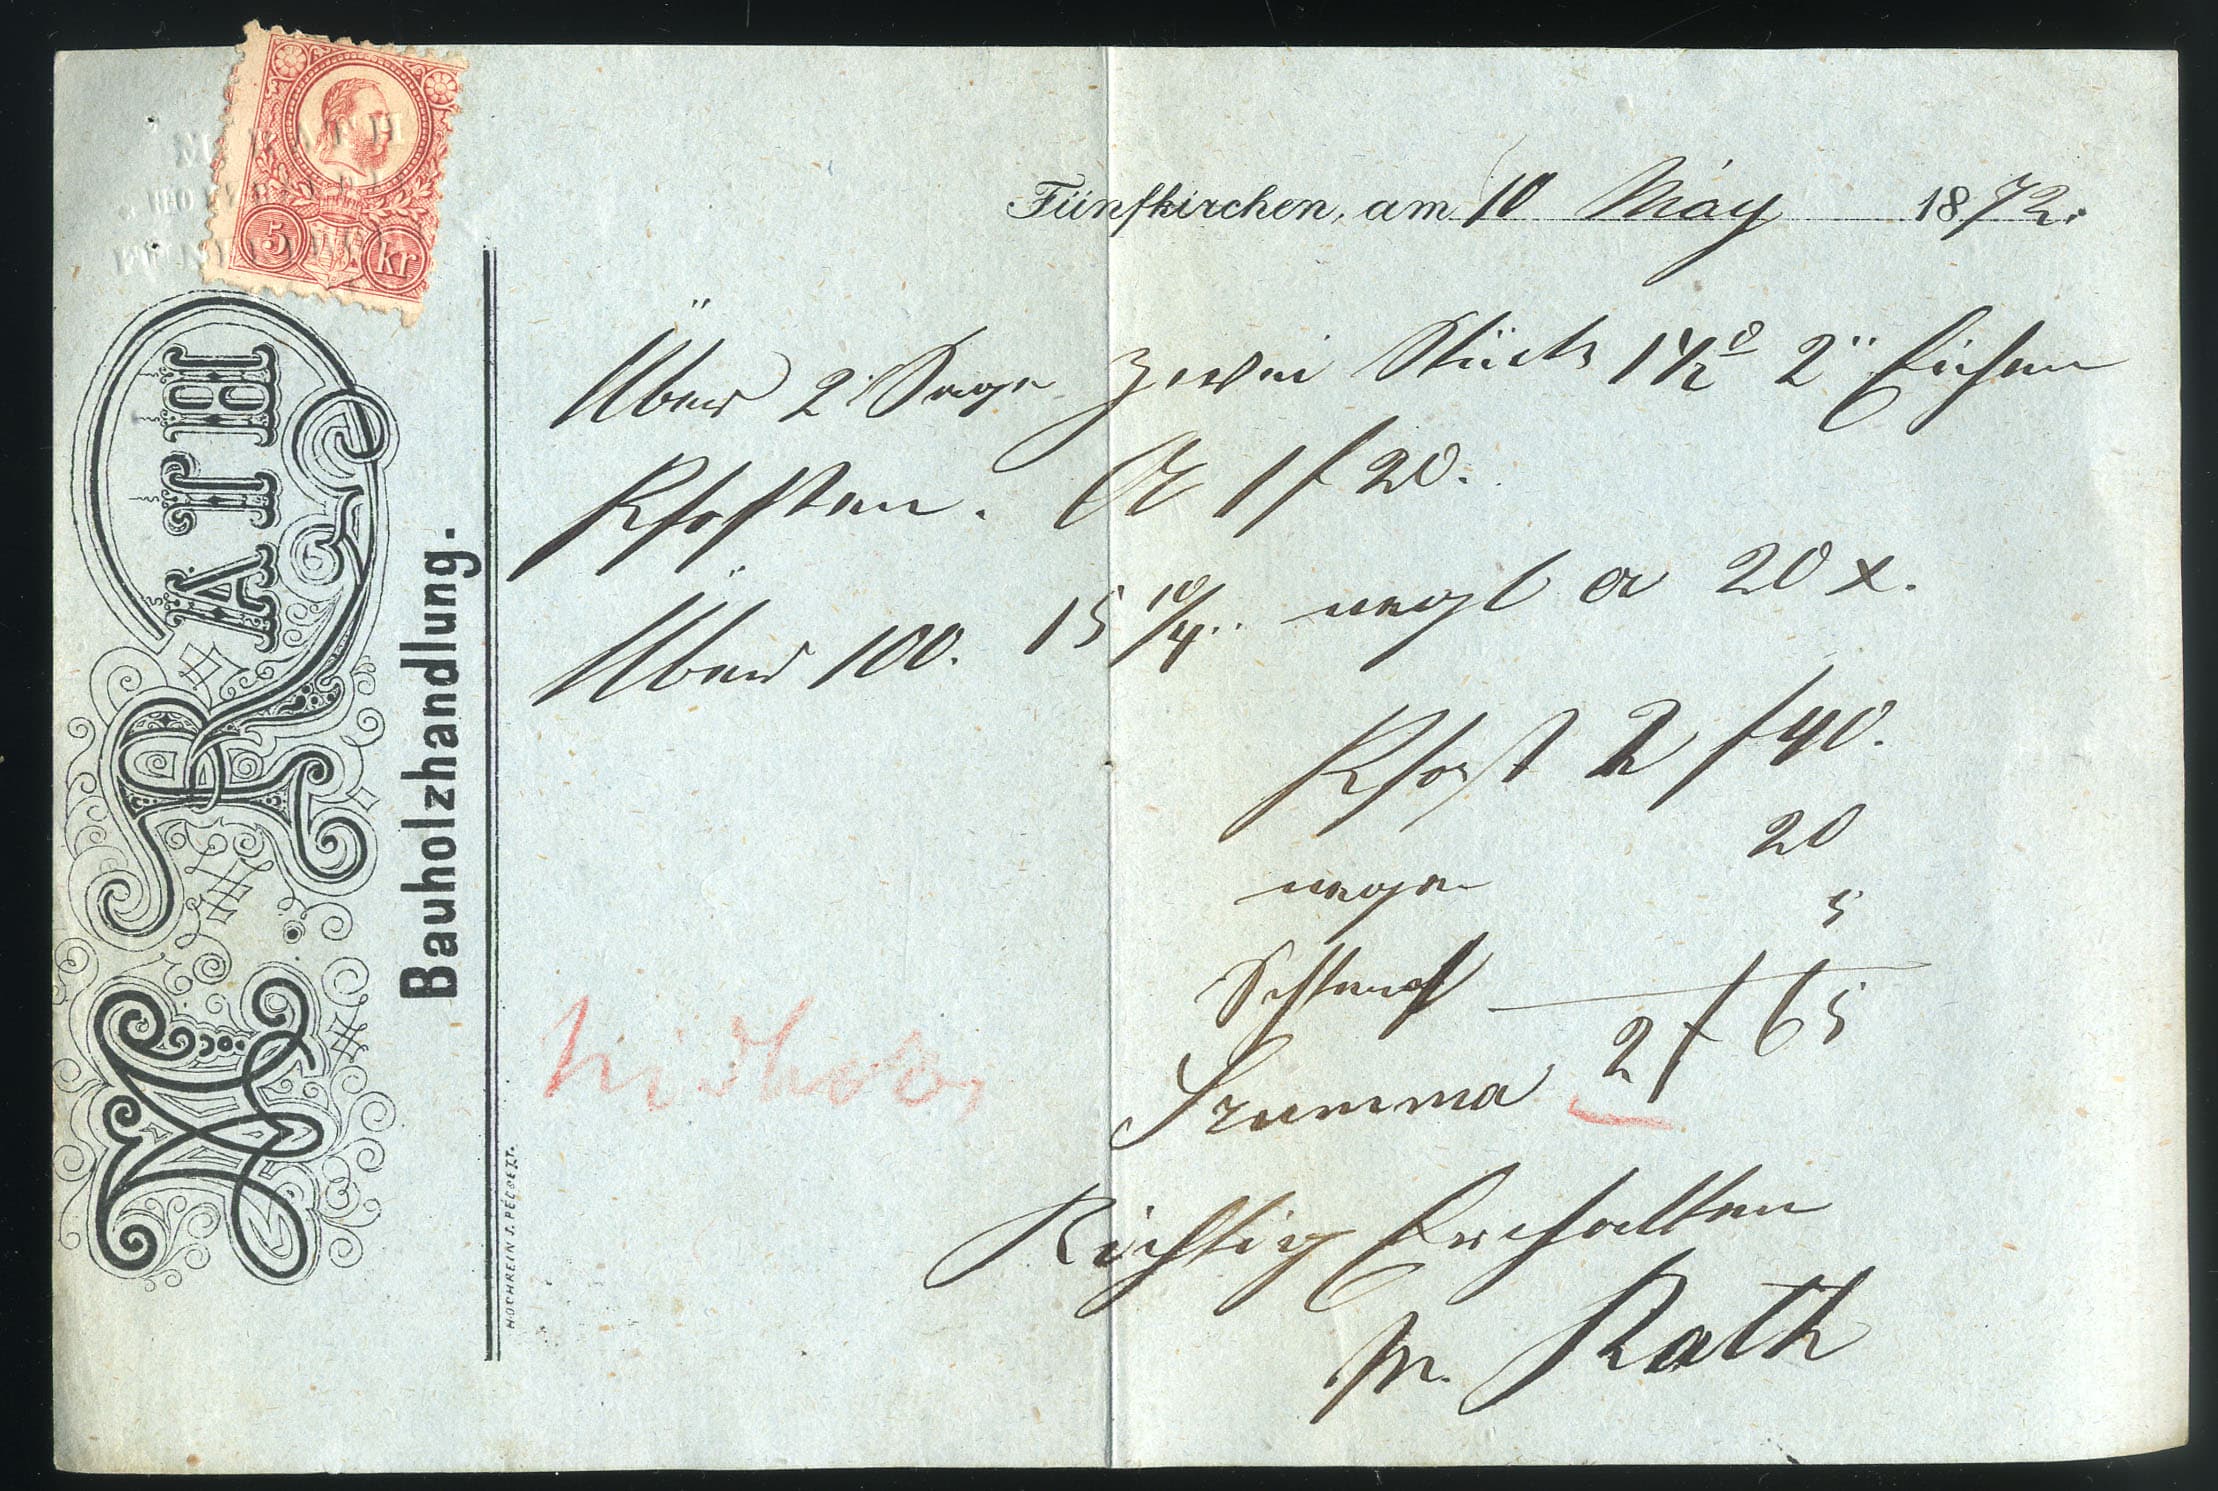 M. RATH
Bauholzhandlung.
5 kr
HOCHREIN J. PÉCSETT.
Fünfkirchen, am 10 May 1872.
Über 2 Sage zwei Stück 1½° 2" Eichen
Pfosten. a 1 f 20.
Über 100. 15 10/4 negl a 20 x.
Pfost 2 f 40.
20
5
Summa 2 f 65
Richtig Erhalten
M. Rath